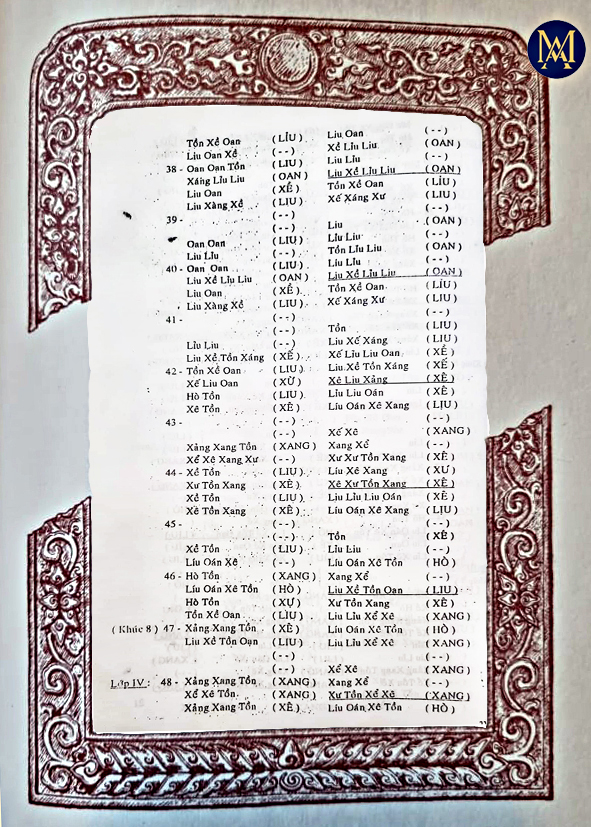 MA
Tồn Xề Oan (LỈU) Liu Oan (--)
Liu Oan Xề (--) Xề Lỉu Liu (OAN)
38 - Oan Oan Tồn (LIU) Liu Lỉu (--)
Xáng Lỉu Liu (OAN) Liu Xề Lỉu Liu (OAN)
Liu Oan (XỀ) Tồn Xề Oan (LỈU)
Liu Xàng Xề (LIU) Xế Xáng Xư (LIU)
39 - (--)
(--) Liu (OAN)
Oan Oan (LIU) Lỉu Liu (--)
Liu Lỉu (--) Tồn Lỉu Liu (OAN)
40 - Oan Oan (LIU) Liu Lỉu (--)
Liu Xề Lỉu Liu (OAN) Liu Xề Lỉu Liu (OAN)
Liu Oan (XỀ) Tồn Xề Oan (LỈU)
Liu Xàng Xề (LIU) Xế Xáng Xư (LIU)
41 - (--)
(--) Tồn (LIU)
Lỉu Liu (--) Liu Xế Xáng (LIU)
Liu Xề Tồn Xáng (XẾ) Xế Lỉu Liu Oan (XỀ)
42 - Tồn Xề Oan (LIU) Liu Xề Tồn Xáng (XẾ)
Xế Liu Oan (XỪ) Xê Liu Xảng (XÊ)
Hò Tồn (LIU) Lỉu Liu Oán (XÊ)
Xê Tồn (XÊ) Líu Oán Xê Xang (LỊU)
43 - (--)
(--) Xế Xê (XANG)
Xảng Xang Tồn (XANG) Xang Xể (--)
Xể Xê Xang Xự (--) Xư Xư Tồn Xang (XÊ)
44 - Xề Tồn (LIU) Líu Xê Xang (XƯ)
Xư Tồn Xang (XÊ) Xê Xư Tồn Xang (XÊ)
Xề Tồn (LIU) Liu Lỉu Liu Oán (XÊ)
Xề Tồn Xang (XÊ) Líu Oán Xê Xang (LỊU)
45 - (--)
(--) Tồn (XÊ)
Xề Tồn (LIU) Lỉu Liu (--)
Líu Oán Xê (--) Líu Oán Xê Tồn (HÒ)
46 - Hò Tồn (XANG) Xang Xể (--)
Líu Oán Xê Tồn (HÒ) Liu Xề Tồn Oan (LIU)
Hò Tồn (XỰ) Xư Tồn Xang (XÊ)
Tồn Xề Oan (LIU) Liu Lỉu Xể Xê (XANG)
(Khúc 8) 47 - Xảng Xang Tồn (XÊ) Líu Oán Xê Tồn (HÒ)
Liu Xề Tồn Oan (LIU) Liu Lỉu Xể Xê (XANG)
(--) (--)
(--) Xể Xê (XANG)
Lớp IV : 48 - Xảng Xang Tồn (XANG) Xang Xể (--)
Xể Xê Tồn (XANG) Xư Tồn Xể Xê (XANG)
Xảng Xang Tồn (XÊ) Líu Oán Xê Tồn (HÒ)